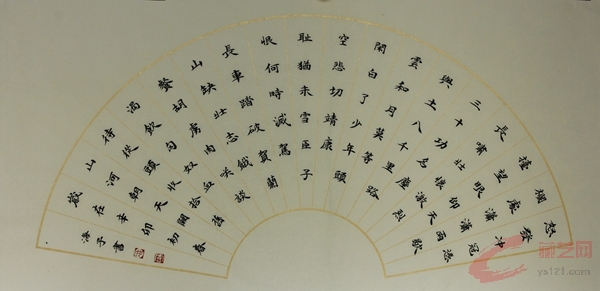 怒發沖冠憑
欄處瀟瀟雨歇
擡望眼仰天
長嘯壯懷激烈
三十功名塵
與土八千里路
雲和月莫等
閑白了少年頭
空悲切靖康
耻猶未雪臣子
恨何時滅駕
長車踏破賀蘭
山缺壯志飢
餐胡虜肉咲談
渴飲匈奴血
待從頭收拾舊
山河朝天闕
歲在辛卯初春
子書
ys121.com